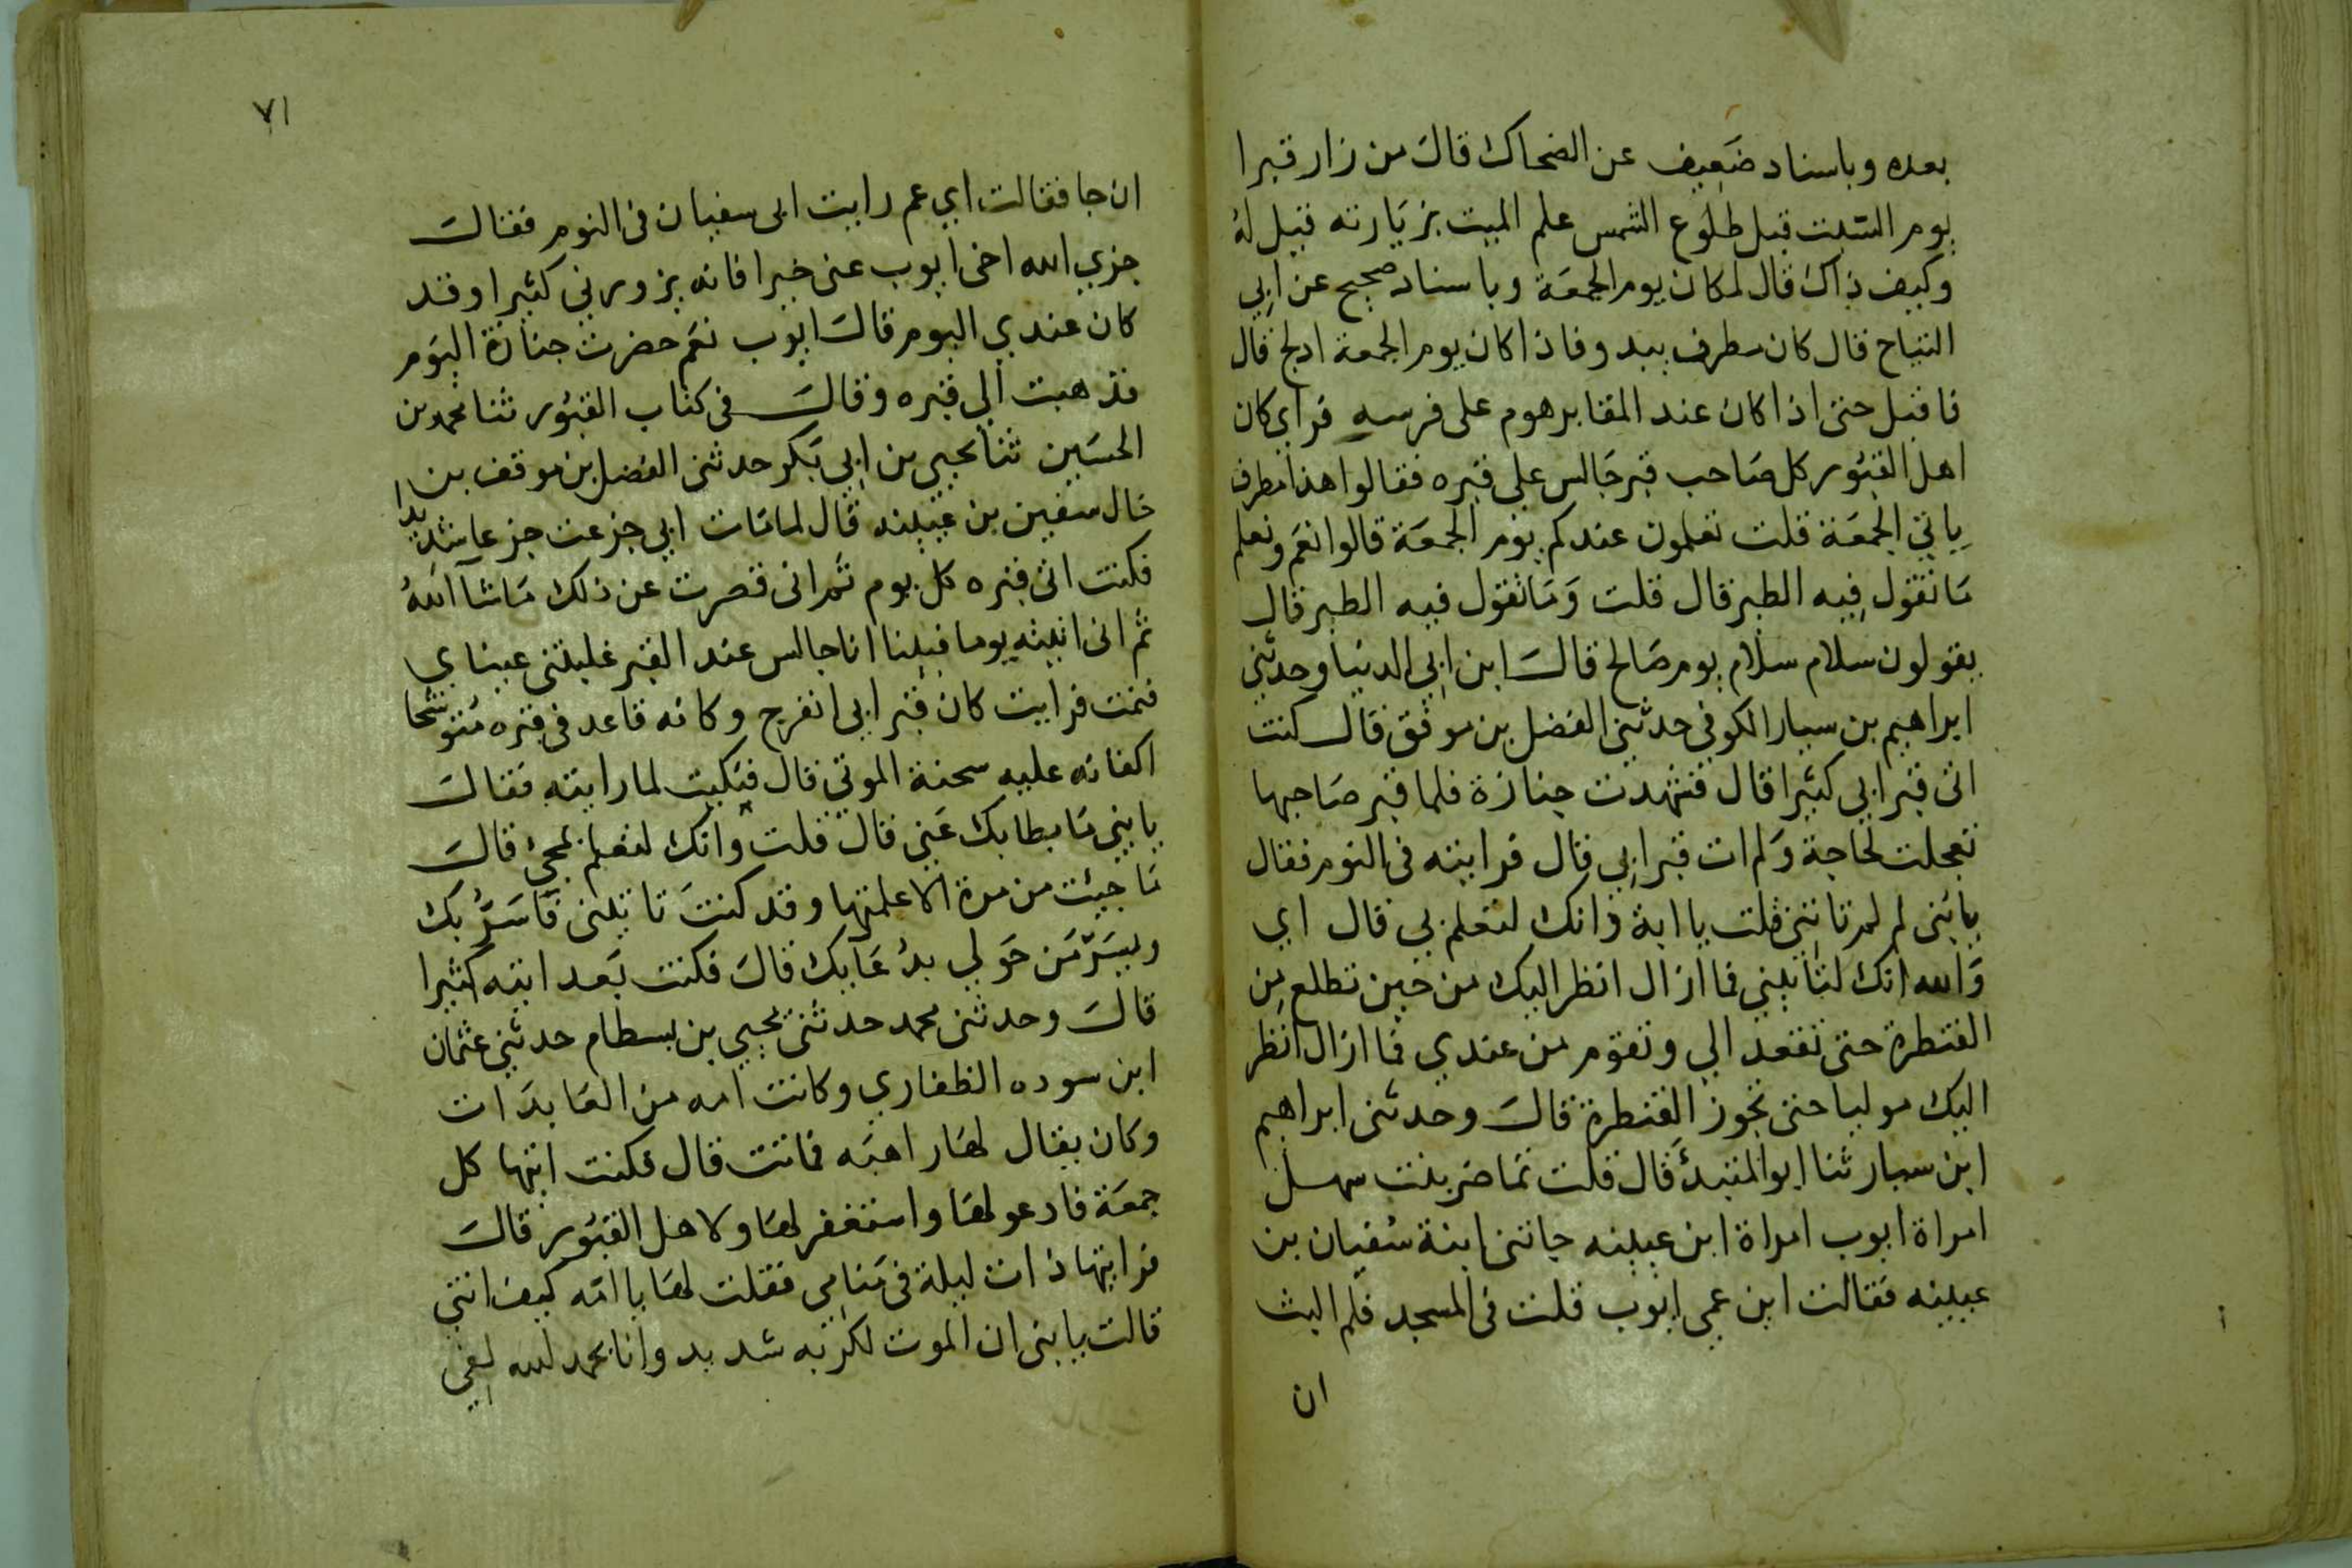 بعده وباسناد ضَعِيف عن الضحاك قالَ من زار قبرا
يوم السّبت قبل طلوع الشمس علم الميت بزيَارته قيل لهُ
وكيف ذاك قال لمكان يوم الجمعَة وباسناد صحيح عن ابِي
التياح قال كان مطرف يبدو فاذا كان يوم الجمعة ادلج قال
فاقبل حتى اذا كان عند المقابر هوم على فرسهِ فراي كان
اهل القبُور كل صَاحب قبر جَالس على قبره فقالوا هذا مطرف
ياتي الجمعَة قلت تعلمون عندكم يوم الجمعَة قالوا نعَم ونعلم
مَا تقول فِيه الطير قال قلت وَمَا تقول فيه الطير قال
يقولون سلام سلام يوم صَالح قالَ ابن ابِي الدنيا وحدثني
ابراهيم بن سيار الكوفي حدثني الفضل بن موفق قال كنت
اتى قبر ابي كثيرا قال فشهدت جنازة فلما قبر صَاحبها
تعجلت لحَاجة وَلم ات قبر ابِي قال فرايته فى النوم فقال
يابُنى لم لم تاتني قلت يا ابة وانك لتعلم بي قال اي
وَالله انك لتاتيني فما ازال انظر اليك من حين تطلع مِن
القنطرة حتى تقعد الي وتقوم من عندي فما ازال انظر
اليك موليا حتى تجوز القنطرة قالَ وحدثنى ابراهيم
ابن سيار ثنا ابو المقيدُ قال قلت تمَاضر بنت سهل
امراة ايوب امراة ابن عيينه جاتنى ابنة سُفيان بن
عيينه فقالت ابن عمي ايوب قلت فى المسجد فلم البث
ان
٧١
ان جا فقالت اي عم رايت ابى سفيان فى النوم فقالَ
جزي الله اخى ايوب عنى خيرا فانه يزورني كثيرا وقد
كان عندي اليوم قالَ ايوب نعَم حضرت جنازة اليَوم
فذهبت الي قبره وقالَ فى كتاب القبُور ثنا محمد بن
الحسَين ثنا يحيي بن ابِي بَكر حدثنى الفضل بن موقف بن
خال سفين بن عيينه قال لما مَات ابي جزعت جزعا شديدا
فكنت اتى قبره كل يوم ثم انى قصرت عن ذلك مَا شا اللهُ
ثم انى اتيته يوما فبينا انا جالس عند القبر غلبتنى عيناي
فنمت فرايت كان قبر ابي انفرج وكانه قاعد فى قبره مُتوشحا
اكفانه عليه سحنة الموتي قال فبَكيت لما رايته فقالَ
يا بني مَا بطا بك عَني قال قلت وانك لتعلم بمجئ قالَ
مَا جيئت من مرة الا علمتها وقد كنتَ تاتينى فَاسَرُّ بك
ويسَرّ مَن حَولي بدُعَايك قالَ فكنت بَعد اتيه كثيرا
قالَ وحدثنى محمد حدثنى يحيي بن بسطام حدثني عثمان
ابن سوده الظفاري وكانت امه من العَابدَات
وكان يقال لهَا راهبَه فماتت قال فكنت اتيها كل
جمعَة فادعو لهَا واستغفر لهَا ولاهل القبُور قالَ
فرايتها ذات ليلة فى مَنامِي فقلت لهَا يا امّه كيف انتى
قالت يا بنى ان الموت لكربه شديد وانا بحمد لله لفِي